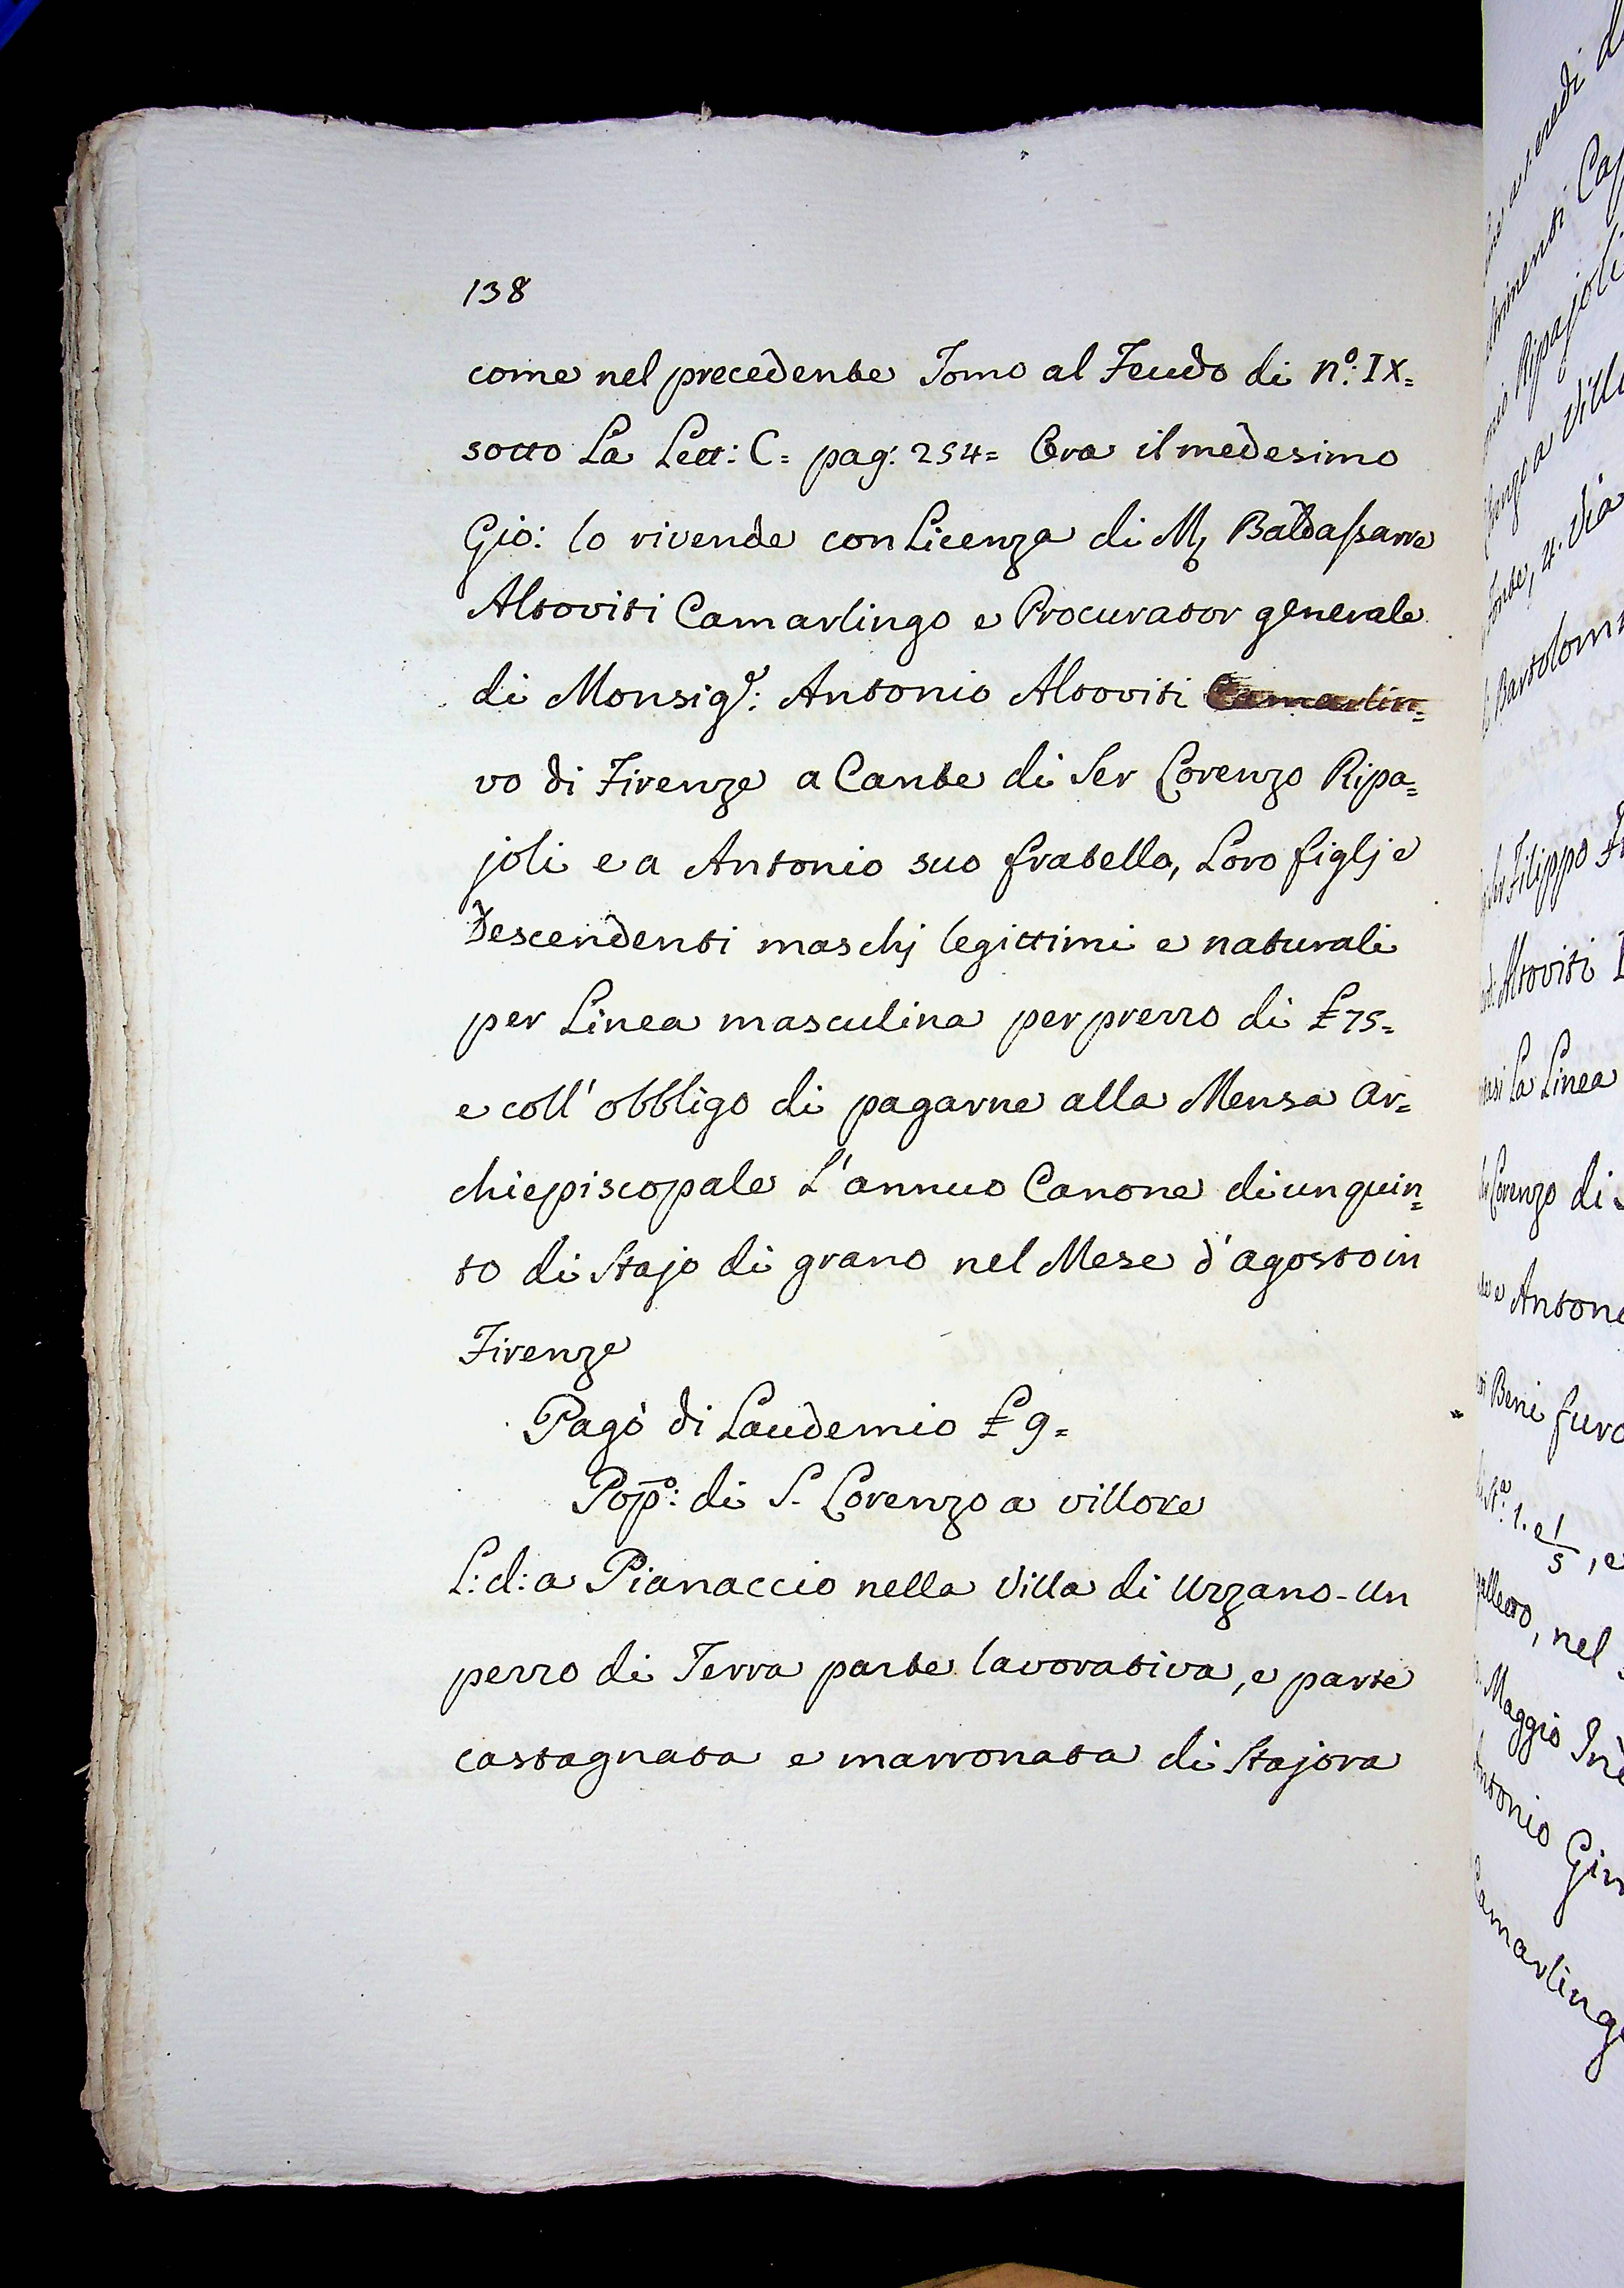 138
come nel precedente Tomo al Feudo di n.º IX=
sotto La Lett: C= pag: 254= Ora il medesimo
Gio: lo rivende con Licenza di M. Baldassarre
Altoviti Camarlingo e Procurator generale
di Monsigr: Antonio Altoviti Camarlin=
vo di Firenze a Cante di Ser Lorenzo Ripa=
joli e a Antonio suo fratello, Loro figlj e
descendenti maschj legittimi e naturali
per Linea masculina per prezzo di £ 75=
e coll' obbligo di pagarne alla Mensa Ar=
chiepiscopale L' annuo Canone di un quin=
to di Stajo di grano nel Mese d' agosto in
Firenze
Pagò di Laudemio £ 9=
Popº: di S. Lorenzo a villore
L: d: a Pianaccio nella Villa di Uzzano - Un
pezzo di Terra parte lavorativa, e parte
castagnata e marronata di Stajora
eredi
Ripajoli
a Vill
4. Via
Bartolom
Filippo
Altoviti
La Linea
Lorenzo di
e Antoni
Beni furo
1. e 1/5, e
nel
Maggio
Antonio Gin
Camarlingo